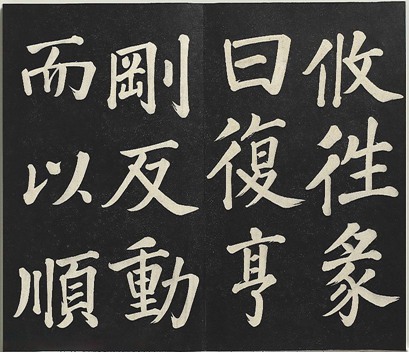 攸徃彖
曰復亨
剛反動
而以順